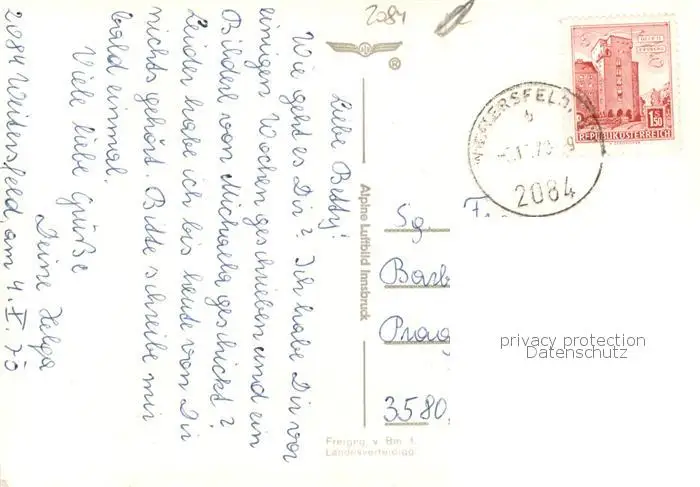 2084
Liebe Betty!
Wie geht es Dir? Ich habe Dir vor
einigen Wochen geschrieben und ein
Bilderl von Michaela geschickt?
Leider habe ich bis heute von Dir
nichts gehört. Bitte schreibe mir
bald einmal.
Viele liebe Grüße
Deine Helga
2084 Weitersfeld, am 4. X. 70
®
Alpine Luftbild Innsbruck
Freigeg. v. Bm. f.
Landesverteidig.
WEITERSFELD
b
2084
1.50
REPUBLIK ÖSTERREICH
Sg.
F
Barb
Prag
3580
privacy protection
Datenschutz